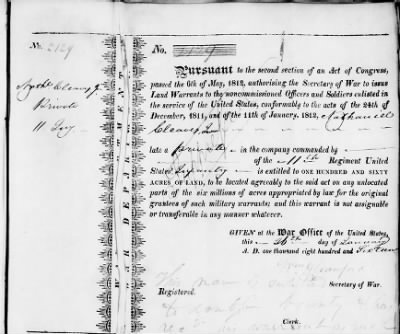 No. 2129
No. 2129
Private
PURSUANT to the second section of an Act of Congress,
passed the 6th of May, 1812, authorising the Secretary of War to issue
Land Warrants to the noncommissioned Officers and Soldiers enlisted in
the service of the United States, conformably to the acts of the 24th of
December, 1811, and of the 11th of January, 1812, Nathaniel
late a Private in the company commanded by
of the 11th Regiment United
States Infantry is entitled to ONE HUNDRED AND SIXTY
ACRES OF LAND, to be located agreeably to the said act on any unlocated
parts of the six millions of acres appropriated by law for the original
grantees of such military warrants; and this warrant is not assignable
or transferable in any manner whatever.
GIVEN at the War Office of the United States,
this 26th day of January
A. D. one thousand eight hundred and
Secretary of War.
Registered.
Clerk.
WAR DEPARTMENT